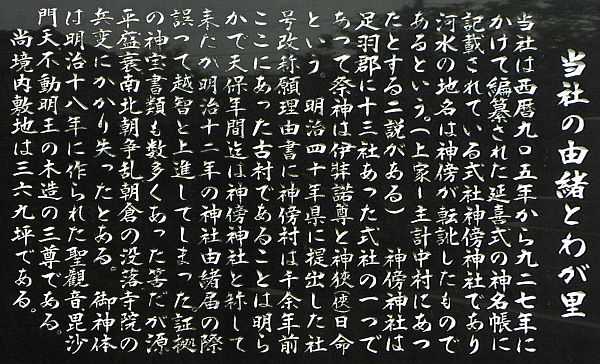 当社の由緒とわが里
当社は西暦九〇五年から九二七年に
かけて編纂された延喜式の神名帳に
記載されている式社神傍神社であり
河水の地名は神傍が転訛したもので
あるという。(上家ー主計中村にあっ
たとする二説がある) 神傍神社は
足羽郡に十三社あった式社の一つで
あって祭神は伊弉諾尊と神狹(侠)日命
という。明治四十年県に提出した社
号改称願理由書に神傍村は千余年前
ここにあった古村であることは明ら
かで天保年間迄は神傍神社と称して
来たが明治十二年の神社由緒届の際
誤って越智と上進してしまった。証拠
の神宝書類も数多くあった筈だが源
平盛衰南北朝争乱朝倉の没落寺院の
兵変にかかり失ったとある。 御神体
は明治十八年に作られた聖觀音毘沙
門天不動明王の木造の三尊である。
尚境内敷地は三六九坪である。